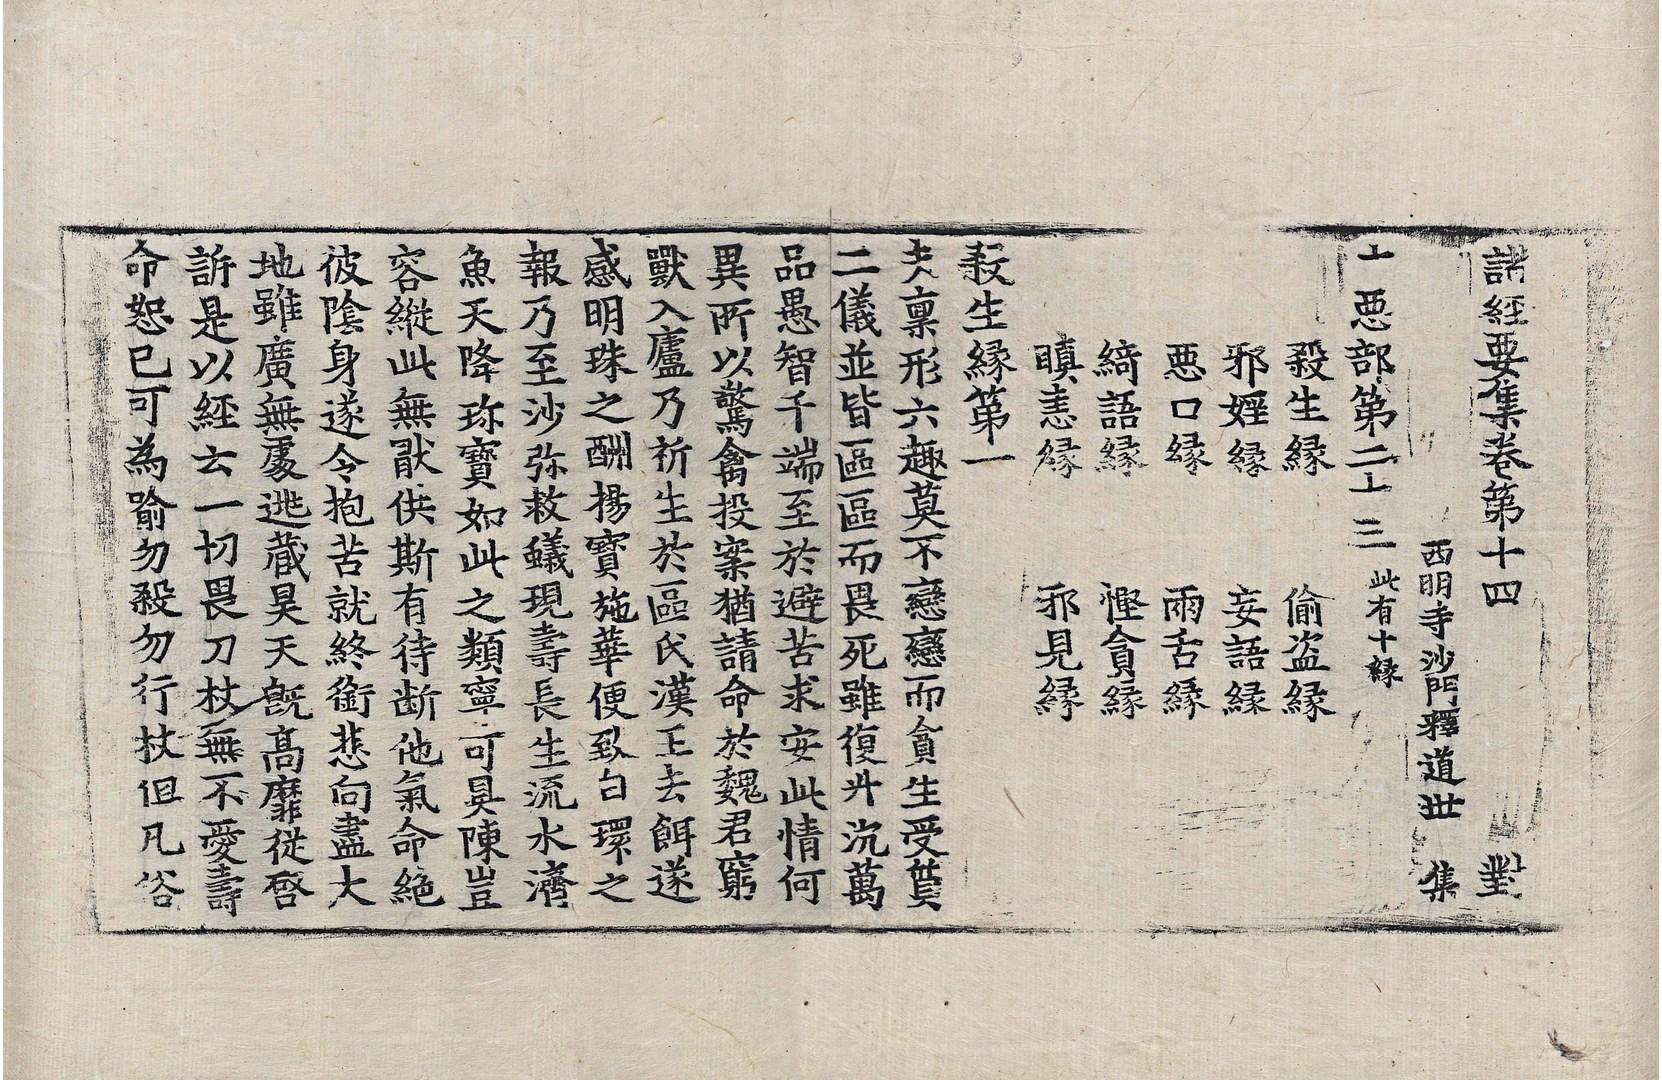 諸經要集卷第十四 對
西明寺沙門釋道世 集
十惡部第二十三 此有十緣
殺生緣 偷盜緣
邪婬緣 妄語緣
惡口緣 兩舌緣
綺語緣 慳貪緣
瞋恚緣 邪見緣
殺生緣第一
夫禀形六趣莫不戀戀而貪生受質
二儀並皆區區而畏死雖復升沉萬
品愚智千端至於避苦求安此情何
異所以驚禽投案猶請命於魏君窮
獸入廬乃祈生於區氏漢王去餌遂
感明珠之酬楊寶施華便致白環之
報乃至沙弥救蟻現壽長生流水濟
魚天降珎寶如此之類寧可具陳豈
容縱此無猒供斯有待断他氣命絶
彼陰身遂令抱苦就終銜悲向盡大
地雖廣無處逃藏昊天既高靡從啓
訴是以經云一切畏刀杖無不愛壽
命恕已可為喻勿殺勿行杖但凡俗